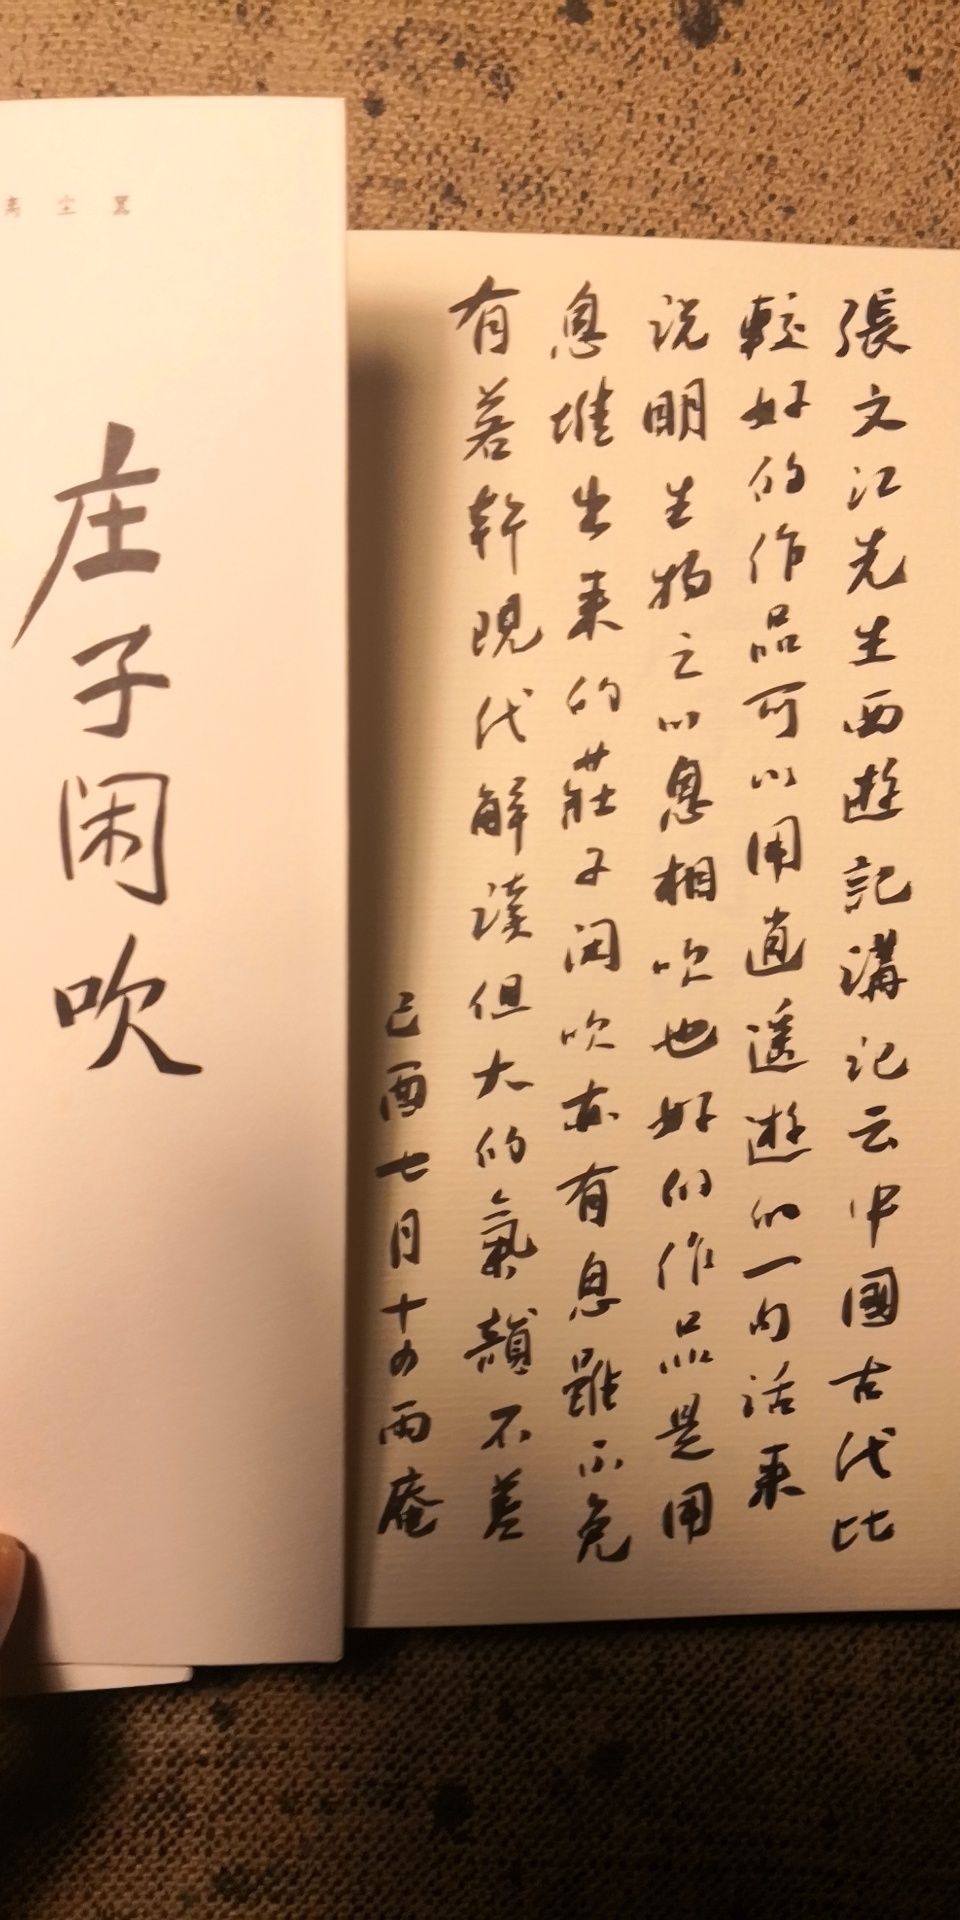 張文江先生西遊記講记云中國古代比
較好的作品可以用逍遥遊的一句话来
说明生物之以息相吹也好的作品是用
息堆出来的莊子闲吹亦有息雖不免
有若幹現代解读但大的氣韻不差
己酉七月十四雨庵
离尘嚣
庄子闲吹